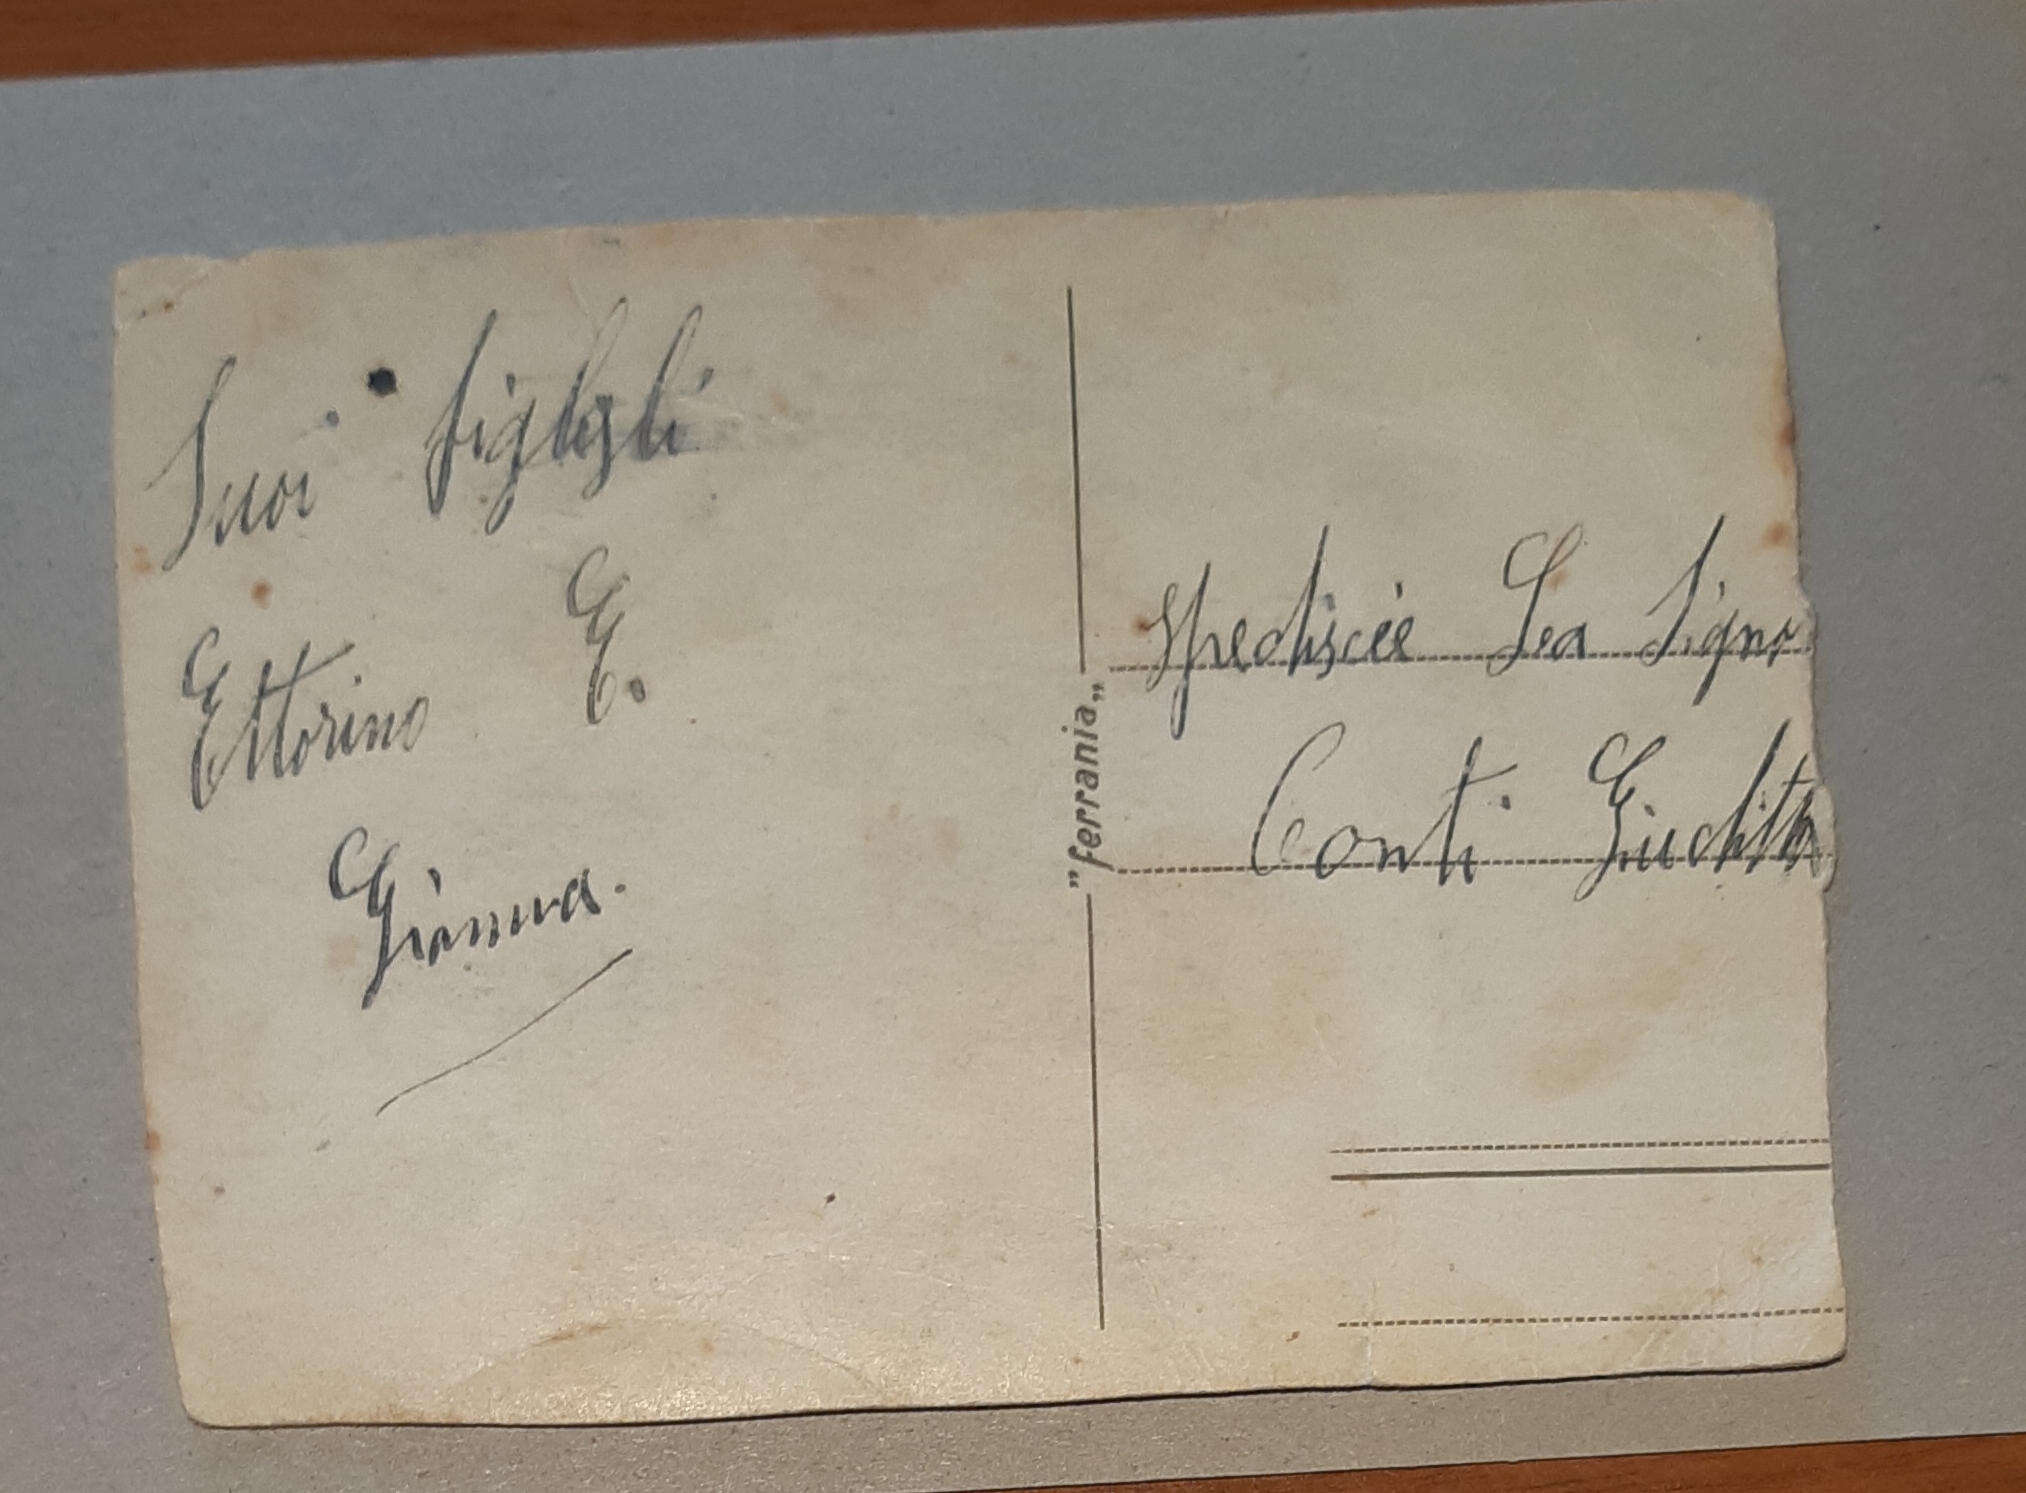 Suoi figlgli
Ettorino E.
Gianna.
"ferrania„
spediscie La Signo
Conti Giuditta